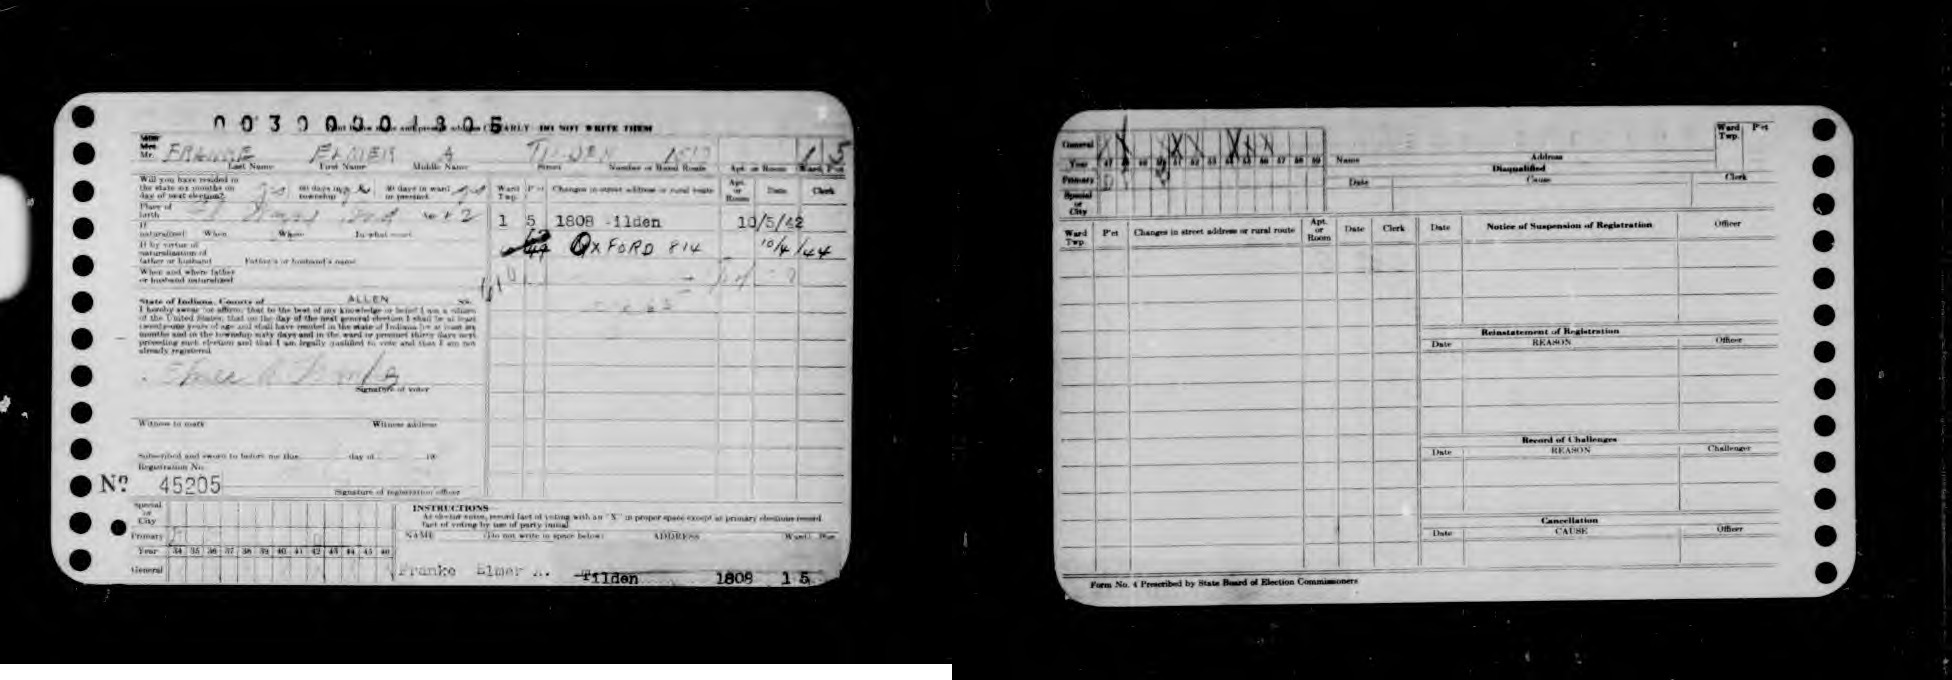 0 0 3 0 0 0 0 1 8 0 5
CLEARLY DO NOT WRITE THEM
Mrs
Mr. FRANKE ELMER A TILDEN 1 5
Last Name First Name Middle Name Street Number or Rural Route Apt. or Room Ward Pct
Will you have resided in
the state six months on 60 days in 30 days in ward
day of next election? township or precinct
Place of
birth
If
naturalized When Where In what court
If by virtue of
naturalization of
father or husband Father's or husband's name
When and where father
or husband naturalized
State of Indiana, County of ALLEN ss.
I hereby swear (or affirm) that to the best of my knowledge or belief I am a citizen
of the United States; that on the day of the next general election I shall be at least
twenty-one years of age and shall have resided in the state of Indiana for at least six
months and in the township sixty days and in the ward or precinct thirty days next
preceding such election and that I am legally qualified to vote and that I am not
already registered
Signature of voter
Witness to mark Witness address
Subscribed and sworn to before me this day of 19
Registration No.
Nº 45205
Signature of registration officer
Ward Twp. Pct Changes in street address or rural route Apt. or Room Date Clerk
1 5 1808 Tilden 10/5/42
OXFORD 814 10/4/44
Special
or
City
Primary
Year 34 35 36 37 38 39 40 41 42 43 44 45 46
General
INSTRUCTIONS
As elector votes, record fact of voting with an "X" in proper space except at primary elections record
fact of voting by use of party initial
NAME (Do not write in space below) ADDRESS Ward Pct
Franke Elmer A. Tilden 1808 1 5
General X X X X X X
Year 47 48 49 50 51 52 53 54 55 56 57 58 59
Primary D
Special
or
City
Name Address
Ward Twp. Pct
Disqualified
Date Cause Clerk
Ward Twp. P'ct Changes in street address or rural route Apt. or Room Date Clerk
Date Notice of Suspension of Registration Officer
Reinstatement of Registration
Date REASON Officer
Record of Challenges
Date REASON Challenger
Cancellation
Date CAUSE Officer
Form No. 4 Prescribed by State Board of Election Commissioners